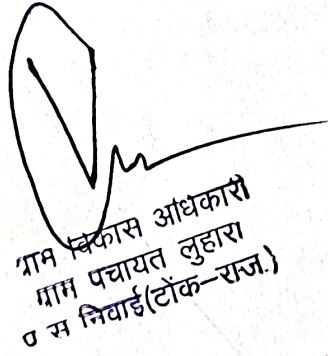 ग्राम विकास अधिकारी
ग्राम पचायत लुहारा
प स निवाई (टोंक-राज.)